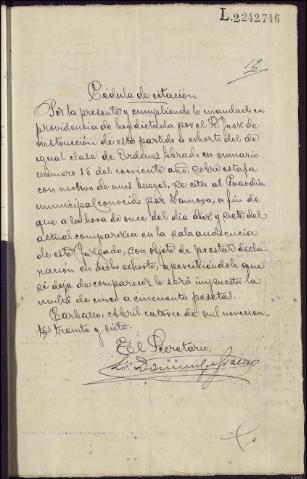 L.2242.746
12
Cédula de citación
Por la presente y cumpliendo lo mandado en
providencia de hoy dictada por el Sr. Juez de
instrucción de este partido a exhorto del de
igual clase de Ordenes librado en sumario
número 18 del corriente año, sobre estafa
con motivo de unos bueyes, se cita al Guardia
municipal conocido por Zamora, a fin de
que a la hora de once del día diez y siete del
actual comparezca en la sala audiencia
de este Juzgado, con objeto de prestar decla-
ración en dicho exhorto, apercibiéndole que
si deja de comparecer le será impuesta la
multa de cinco a cincuenta pesetas.
Carballo, Abril catorce de mil novecien-
tos treinta y
El Secretario,